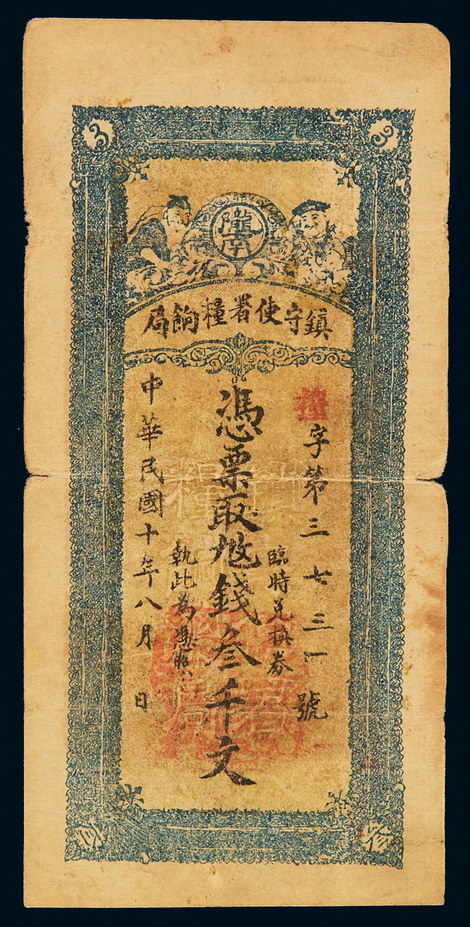 3 3
隴南
鎮守使署糧餉局
糧字第三七三一號
臨時兌換券
憑票取地錢叁千文
執此為憑照
中華民國十年八月 日
叁 叁